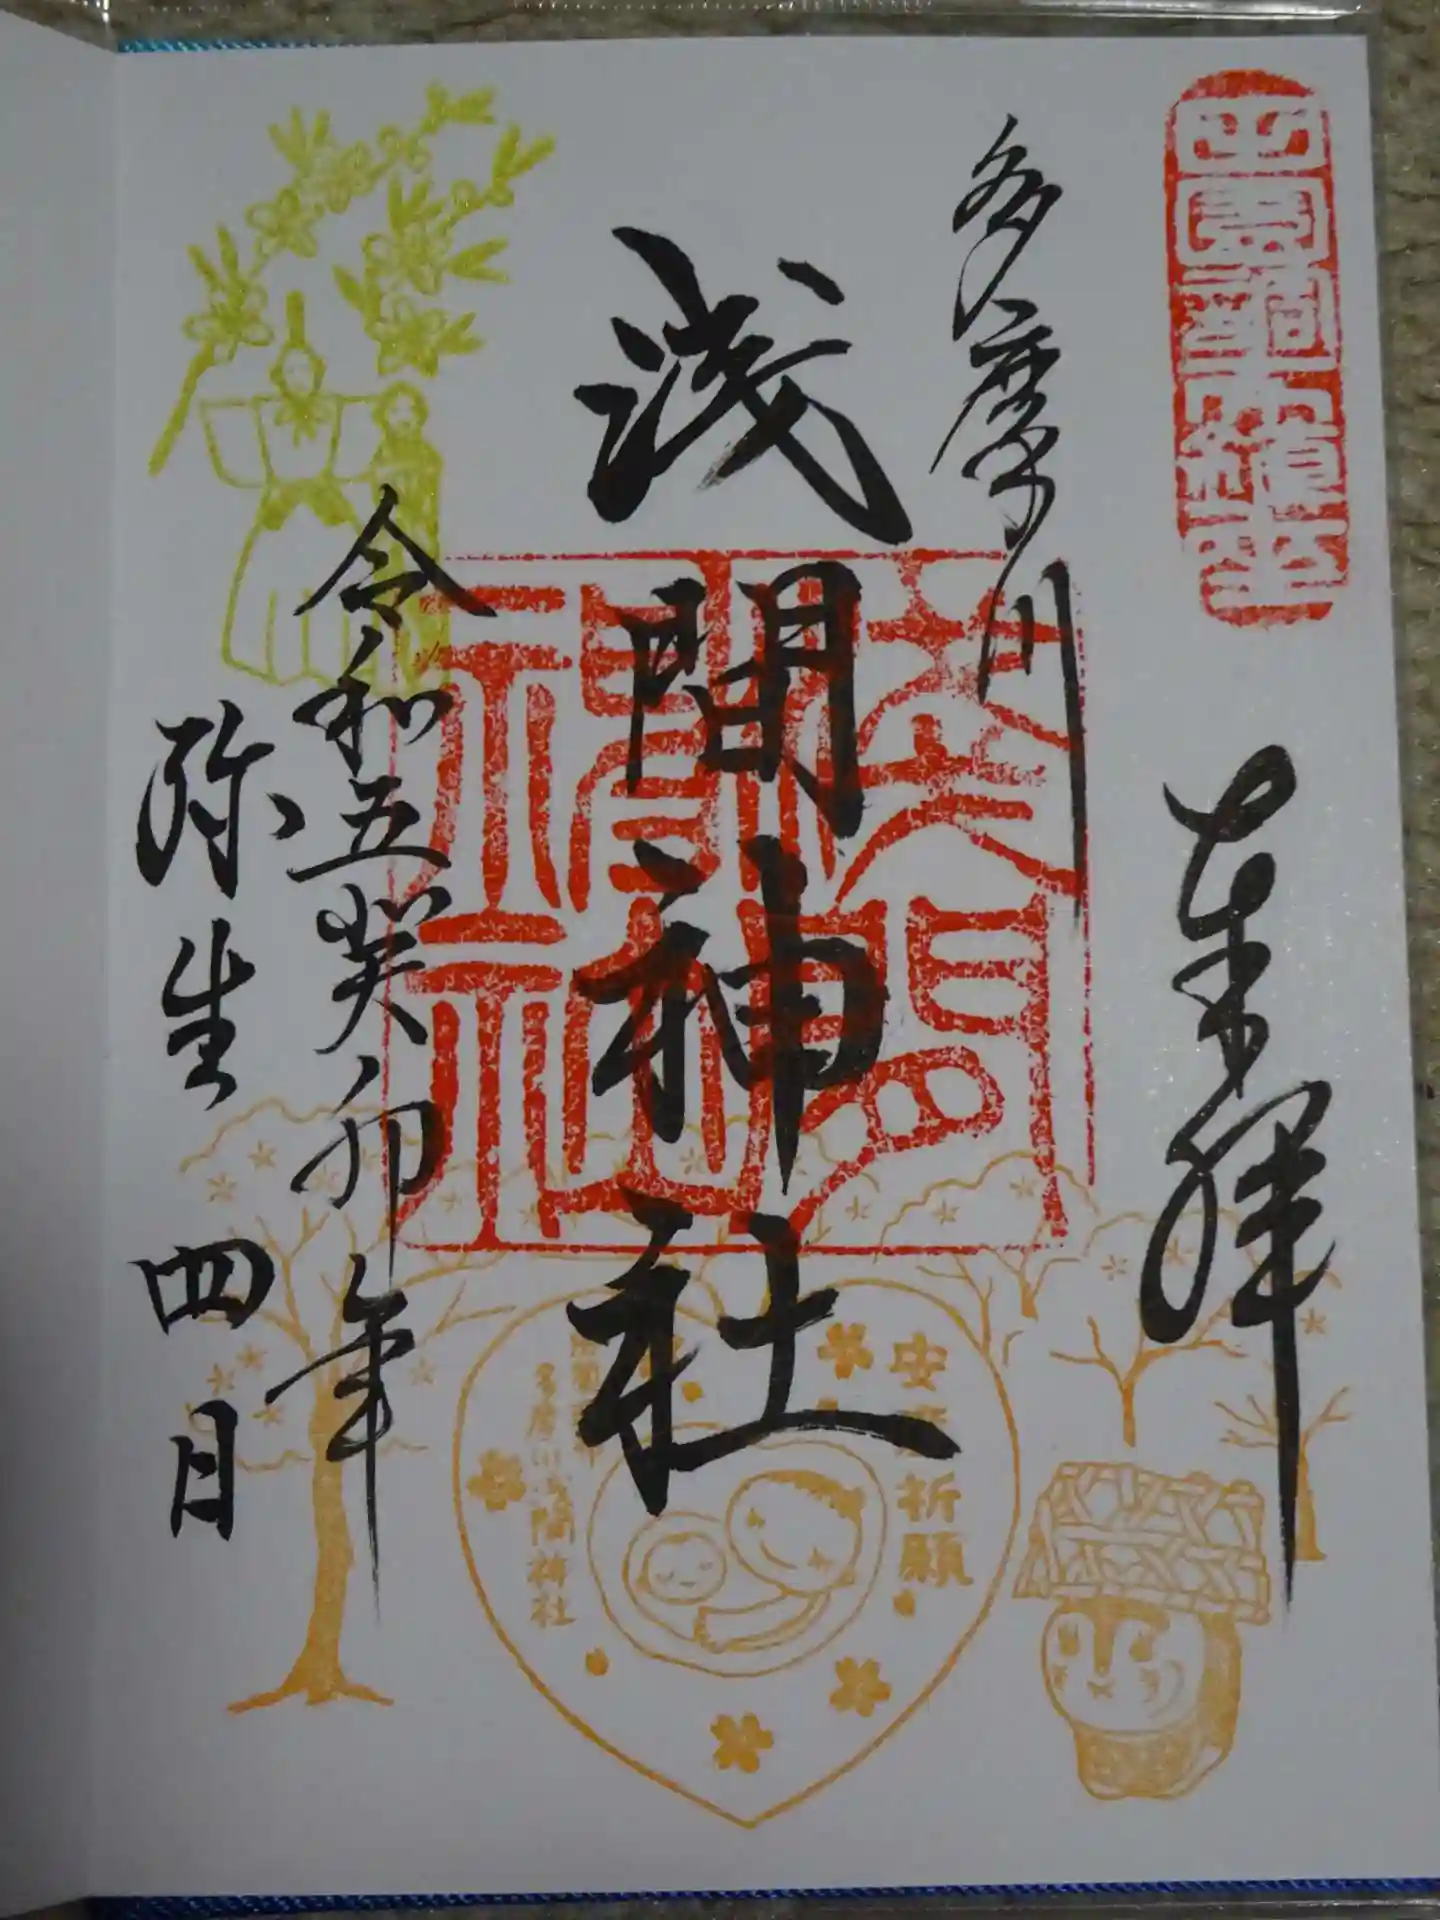 奉拝
多摩川
浅間神社
令和五癸卯年
弥生 四日
安産祈願
多摩川浅間神社